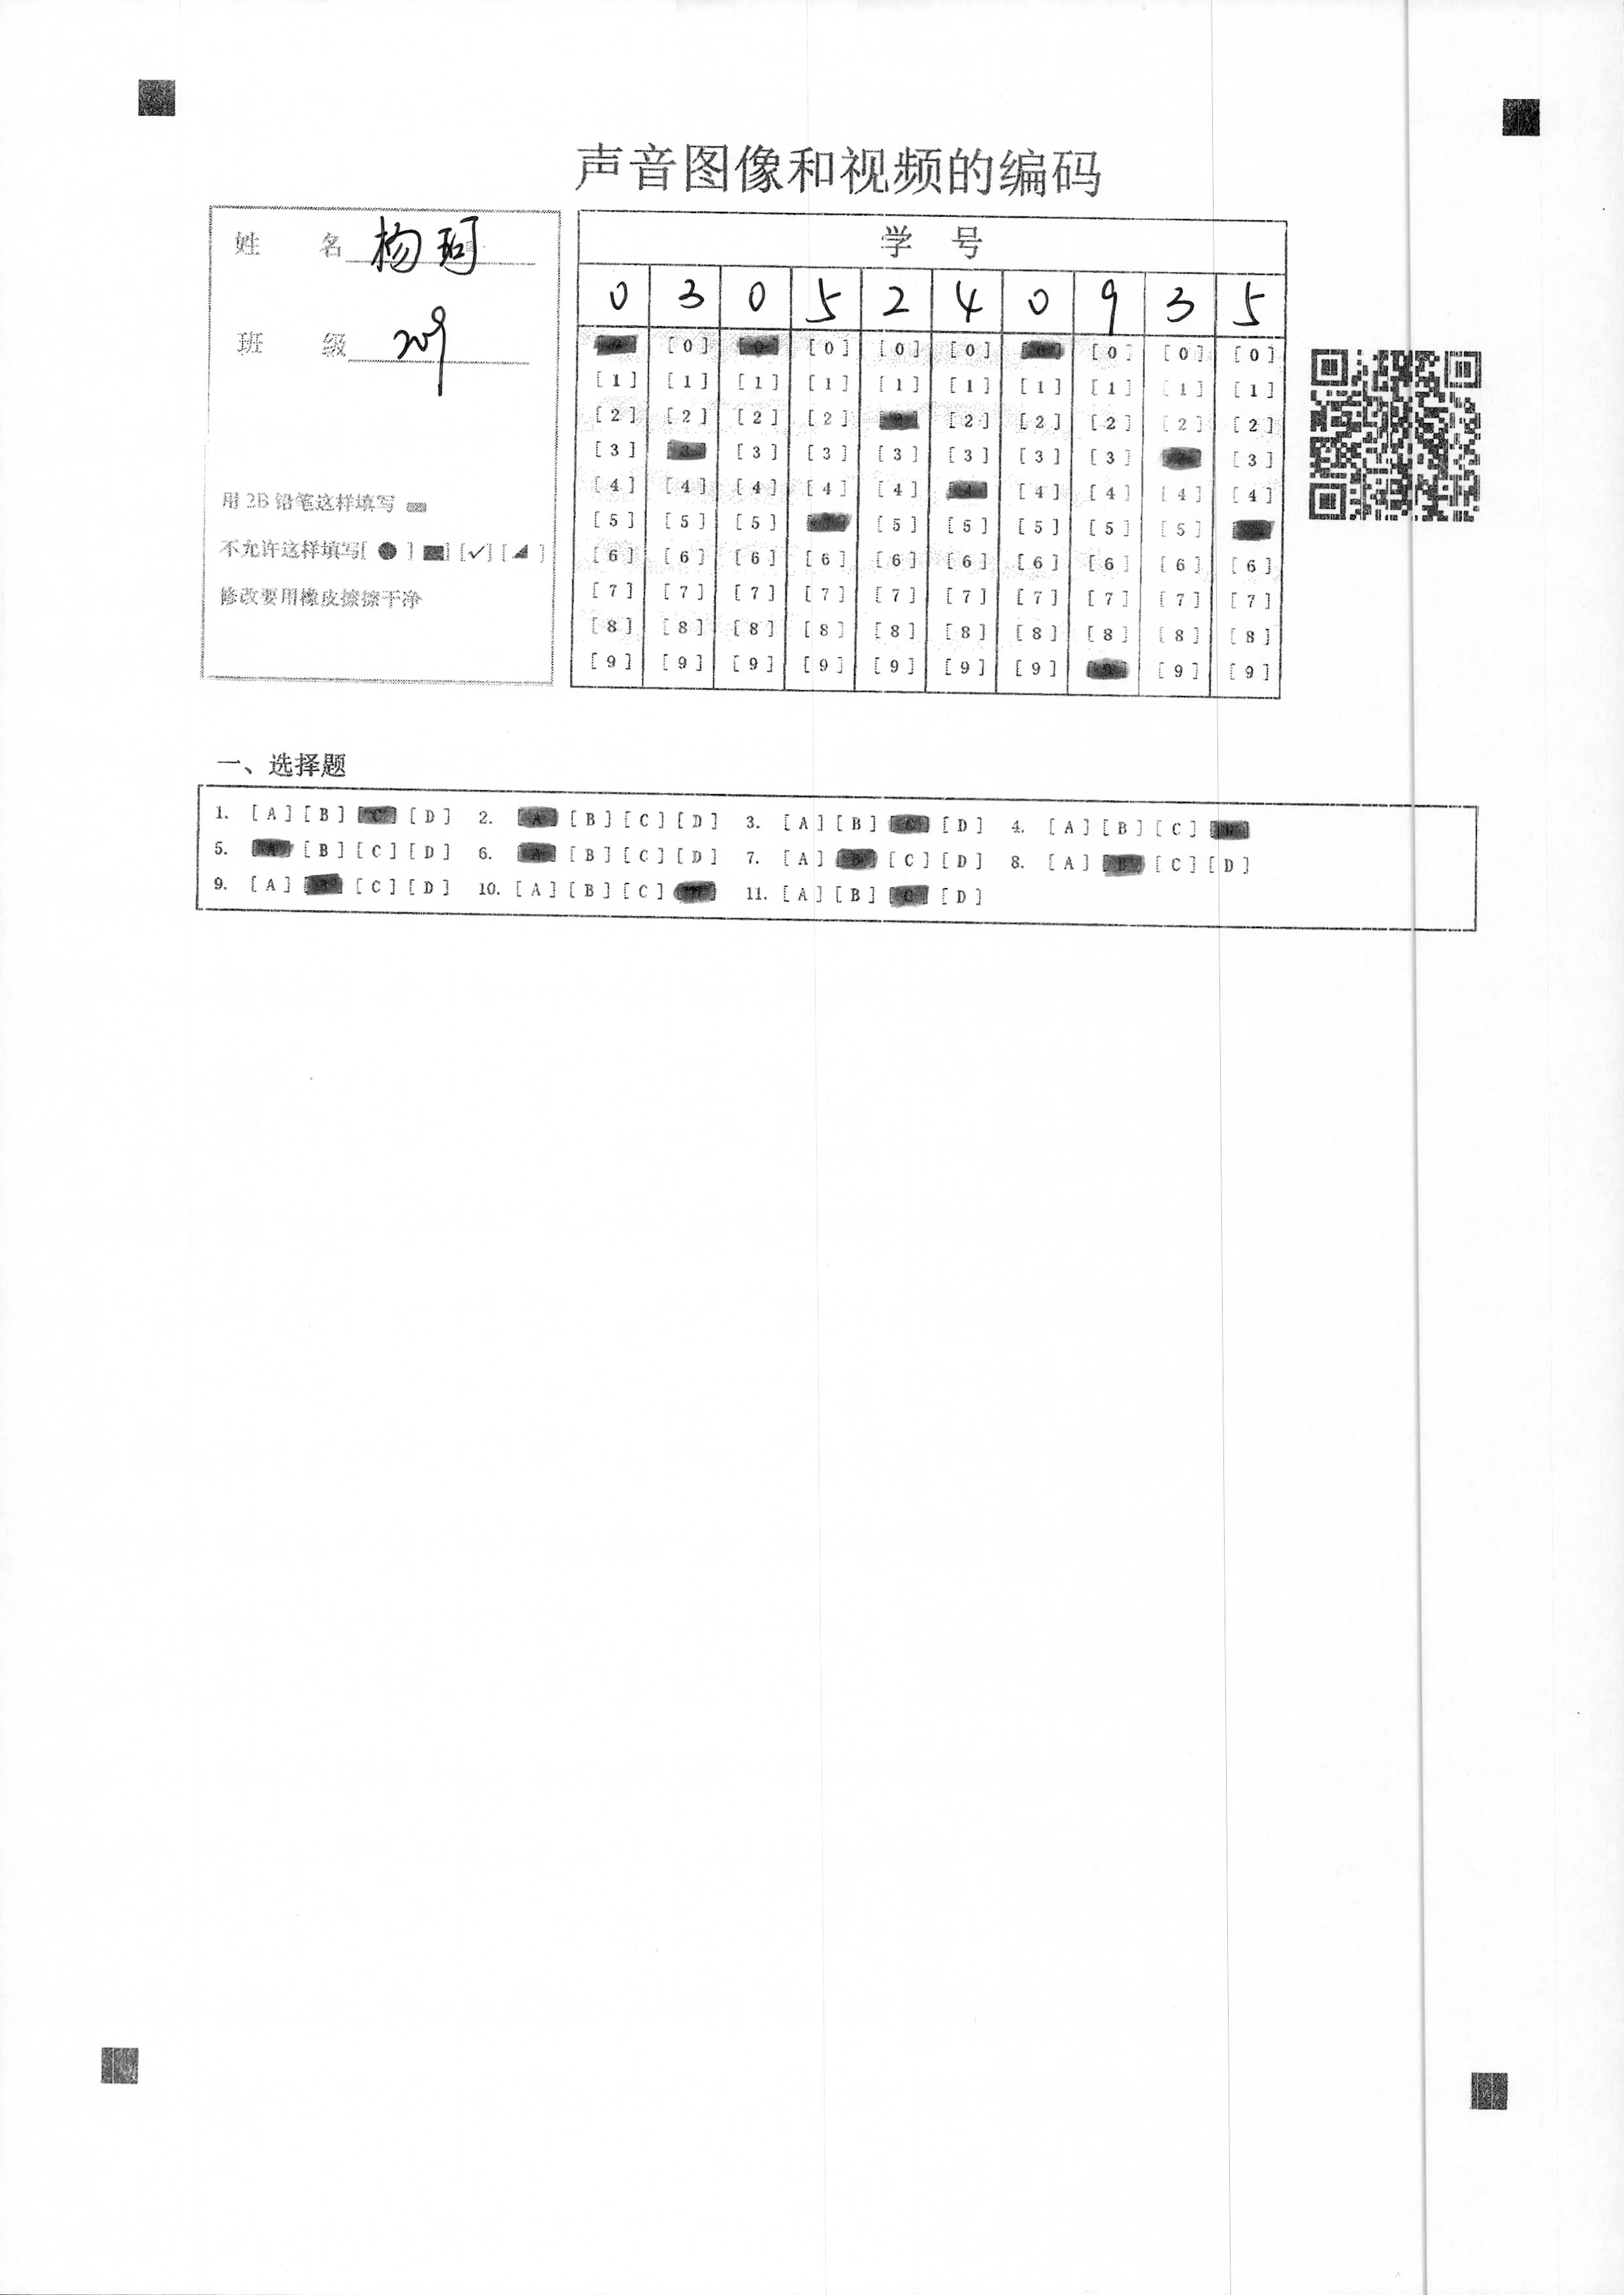 声音图像和视频的编码
姓 名 杨珂
班 级 209
用2B铅笔这样填写
不允许这样填写[ ● ] ■] [✓] [◢ ]
修改要用橡皮擦擦干净
学 号
0 3 0 5 2 4 0 9 3 5
[0] [0] [0] [0] [0] [0] [0] [0] [0] [0]
[1] [1] [1] [1] [1] [1] [1] [1] [1] [1]
[2] [2] [2] [2] [2] [2] [2] [2] [2] [2]
[3] [3] [3] [3] [3] [3] [3] [3] [3] [3]
[4] [4] [4] [4] [4] [4] [4] [4] [4] [4]
[5] [5] [5] [5] [5] [5] [5] [5] [5] [5]
[6] [6] [6] [6] [6] [6] [6] [6] [6] [6]
[7] [7] [7] [7] [7] [7] [7] [7] [7] [7]
[8] [8] [8] [8] [8] [8] [8] [8] [8] [8]
[9] [9] [9] [9] [9] [9] [9] [9] [9] [9]
一、选择题
1. [A] [B] [C] [D] 2. [A] [B] [C] [D] 3. [A] [B] [C] [D] 4. [A] [B] [C] [D]
5. [A] [B] [C] [D] 6. [A] [B] [C] [D] 7. [A] [B] [C] [D] 8. [A] [B] [C] [D]
9. [A] [B] [C] [D] 10. [A] [B] [C] [D] 11. [A] [B] [C] [D]